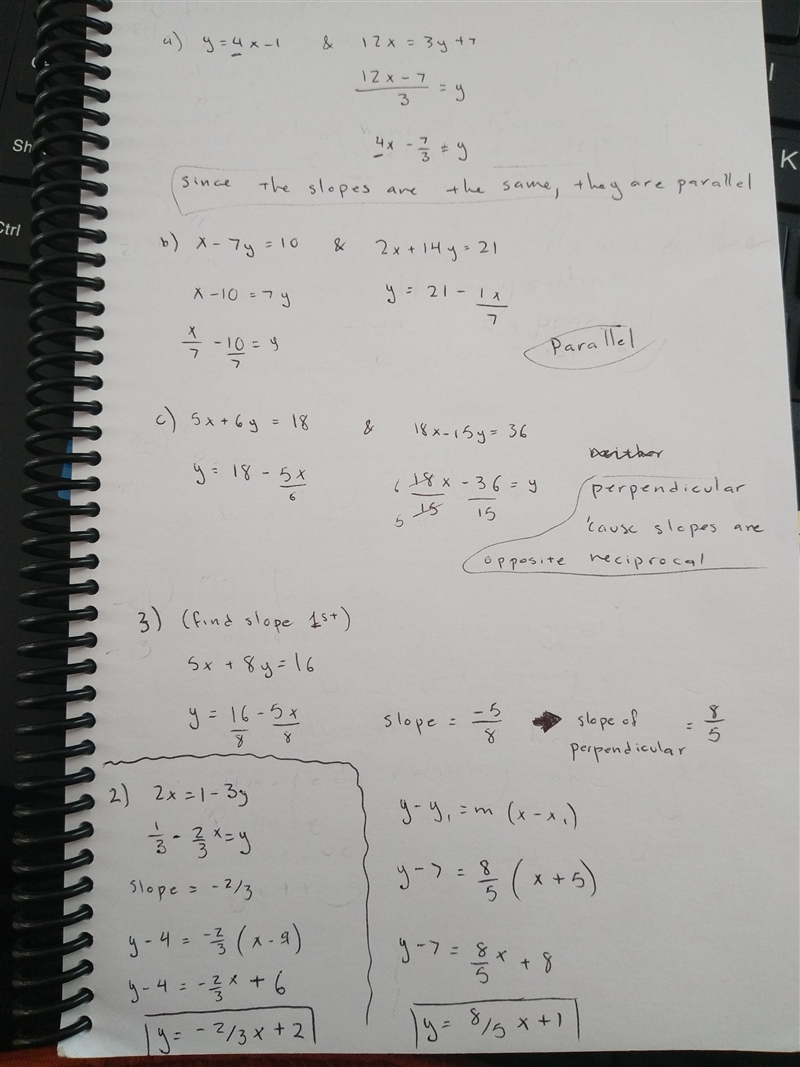 a) y = 4x - 1 & 12x = 3y + 7
12x - 7 / 3 = y
4x - 7/3 = y
Since the slopes are the same, they are parallel
b) x - 7y = 10 & 2x + 14y = 21
x - 10 = 7y
y = 21 - 1x/7
x/7 - 10/7 = y
Parallel
c) 5x + 6y = 18 & 18x - 15y = 36
y = 18 - 5x/6
6 18x/15 5 - 36/15 = y
neither
perpendicular
'cause slopes are
opposite reciprocal
3) (find slope 1st)
5x + 8y = 16
y = 16/8 - 5x/8
slope = -5/8 → slope of perpendicular = 8/5
y - y₁ = m (x - x₁)
y - 7 = 8/5 (x + 5)
y - 7 = 8/5 x + 8
y = 8/5 x + 1
2) 2x = 1 - 3y
1/3 - 2/3 x = y
slope = -2/3
y - 4 = -2/3 (x - 9)
y - 4 = -2/3 x + 6
y = -2/3 x + 2
Ctrl
Sh
K